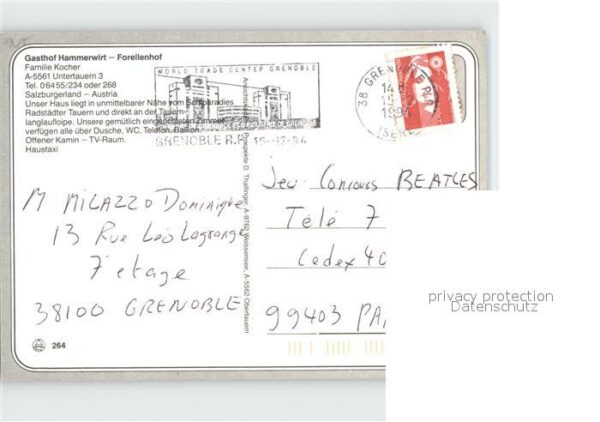 Gasthof Hammerwirt — Forellenhof
Familie Kocher
A-5561 Untertauern 3
Tel. 06455/234 oder 268
Salzburgerland – Austria
Unser Haus liegt in unmittelbarer Nähe vom Schiparadies
Radstädter Tauern und direkt an der Tauern-
langlaufloipe. Unsere gemütlich eingerichteten Zimmer
verfügen alle über Dusche, WC, Telefon, Balkon.
Offener Kamin – TV-Raum.
Haustaxi
WORLD TRADE CENTER GRENOBLE
GRENOBLE R.P. 15-12-94
38 GRENOBLE R.P.
ISERE
D. Thallinger A-9762 Weissensee, A-5562 Obertauern
M MILAZZO Dominique
13 Rue Léo Lagrange
7' etage
38100 GRENOBLE
Jeu Concours BEATLES
Télé 7
Cedex 40
99403 PA
264
privacy protection
Datenschutz